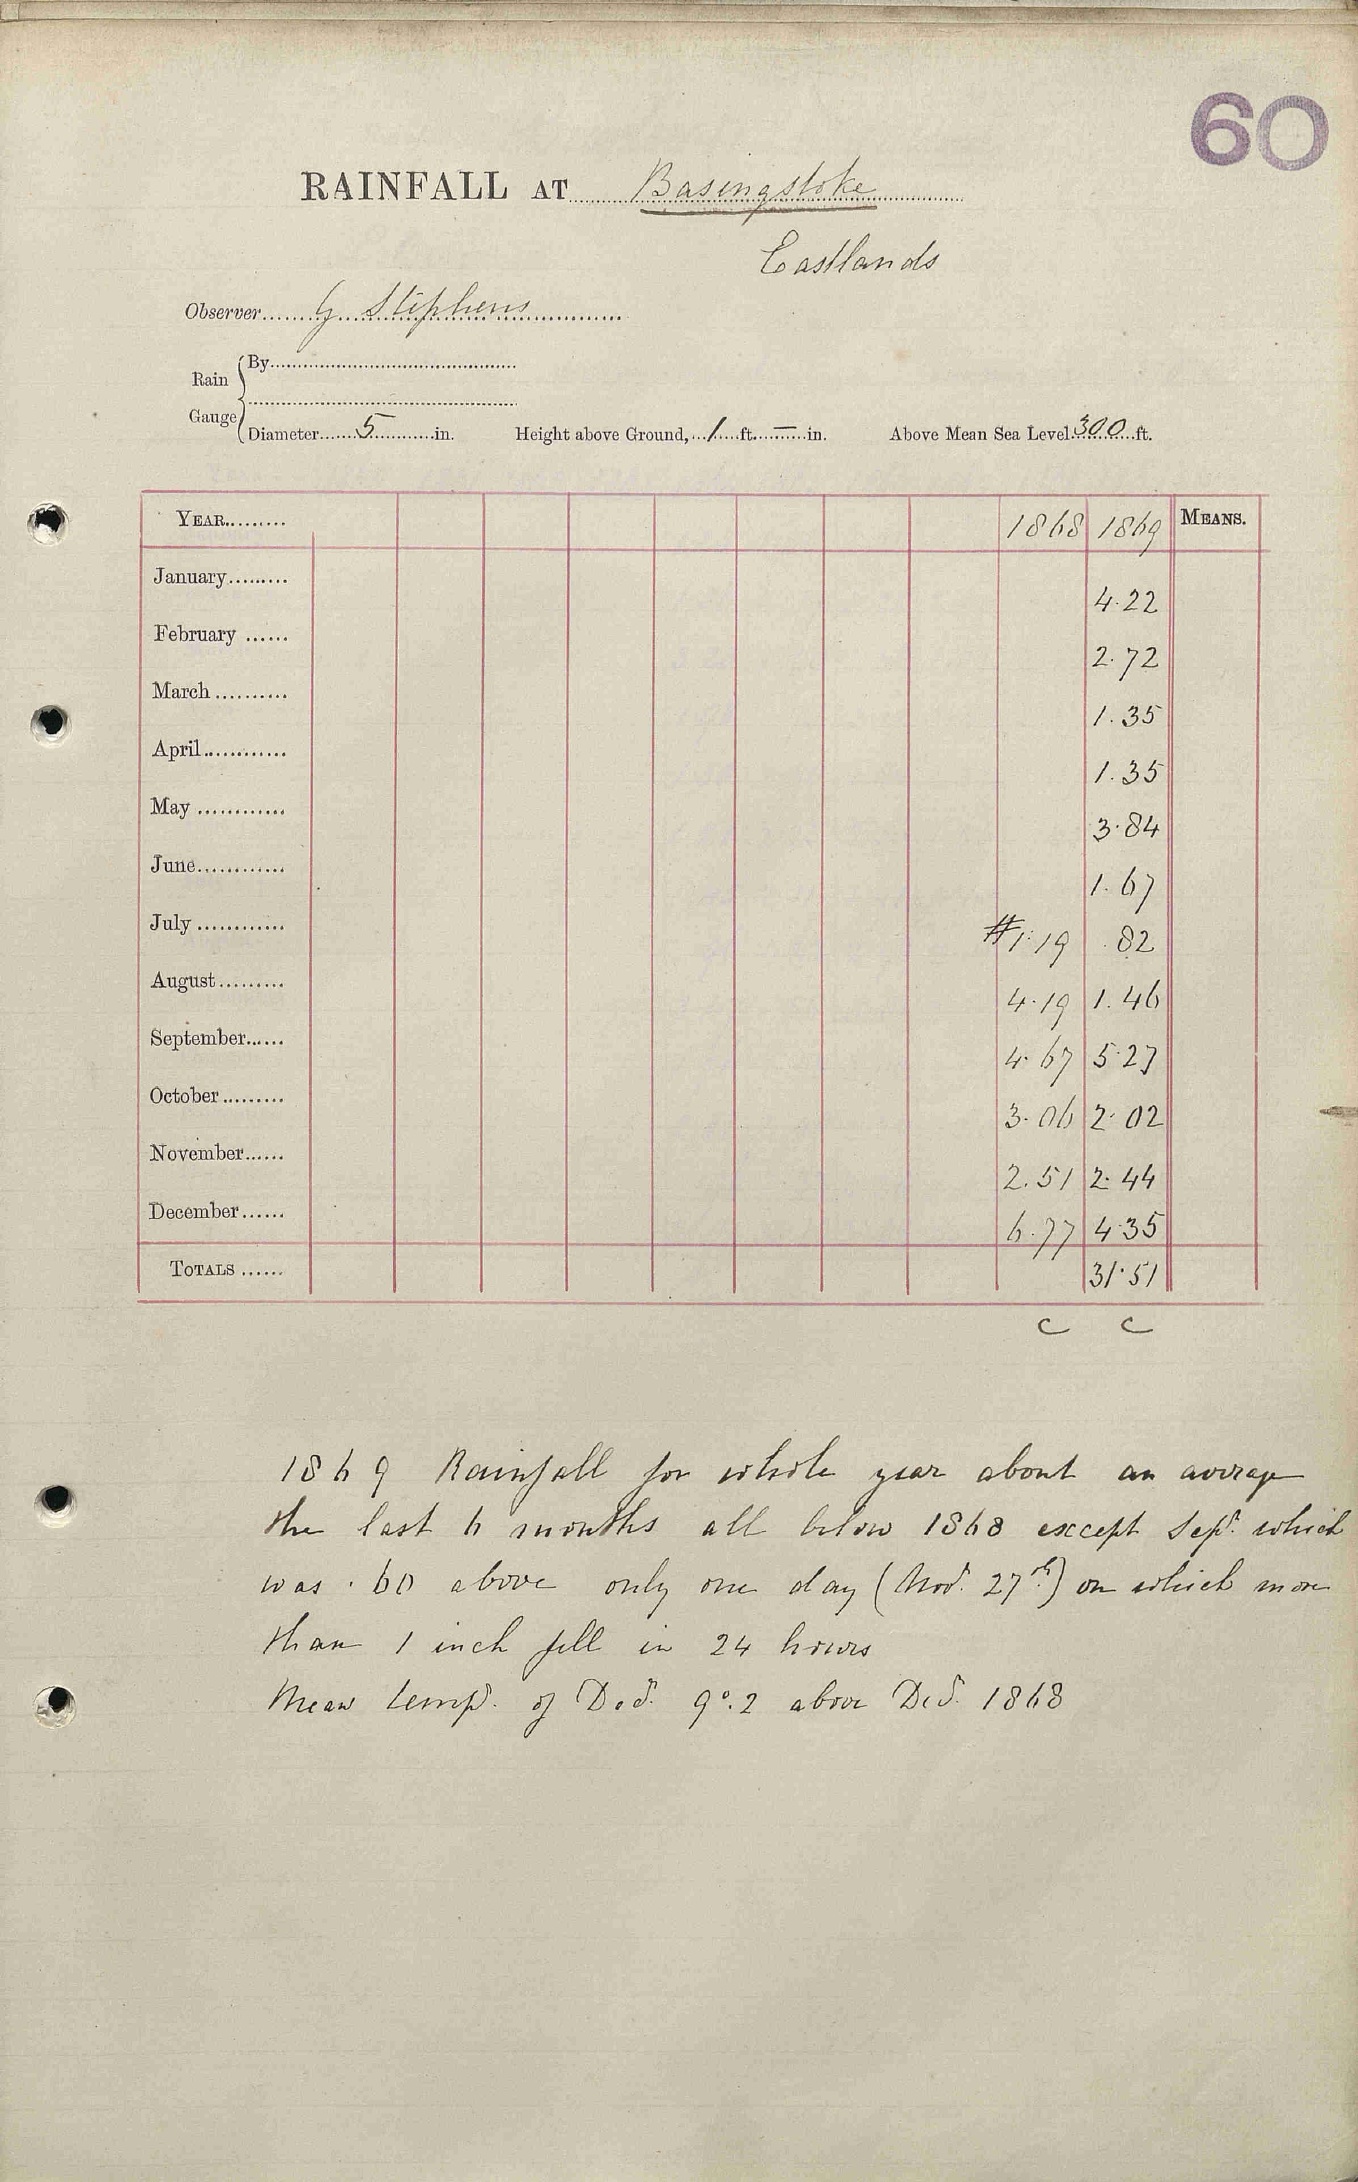 60
RAINFALL AT Basingstoke
Eastlands
Observer G Stephens
Rain Gauge
By
Diameter 5 in. Height above Ground, 1 ft. — in. Above Mean Sea Level 300 ft.
YEAR 1868 1869 MEANS.
January 4.22
February 2.72
March 1.35
April 1.35
May 3.84
June 1.67
July #1.19 .82
August 4.19 1.46
September 4.67 5.27
October 3.06 2.02
November 2.51 2.44
December 6.77 4.35
TOTALS 31.51
C C
1869 Rainfall for whole year about an average
the last 6 months all below 1868 except Sept. which
was .60 above only one day (Nov. 27th) on which more
than 1 inch fell in 24 hours
Mean temp. of Dec. 9°.2 above Dec. 1868